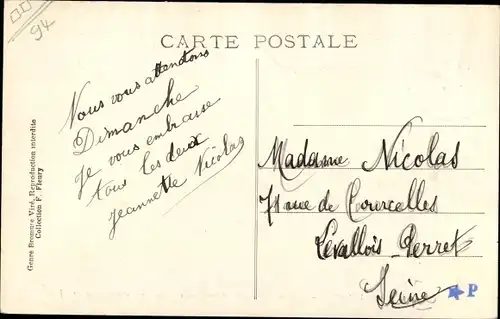 94
CARTE POSTALE
Nous vous attendons
Dimanche
Je vous embrasse
tous les deux
Jeannette Nicolas
Madame Nicolas
71 rue de Courcelles
Levallois-Perret
Seine
P
Genre Bromure Viré, Reproduction interdite
Collection F. Fleury